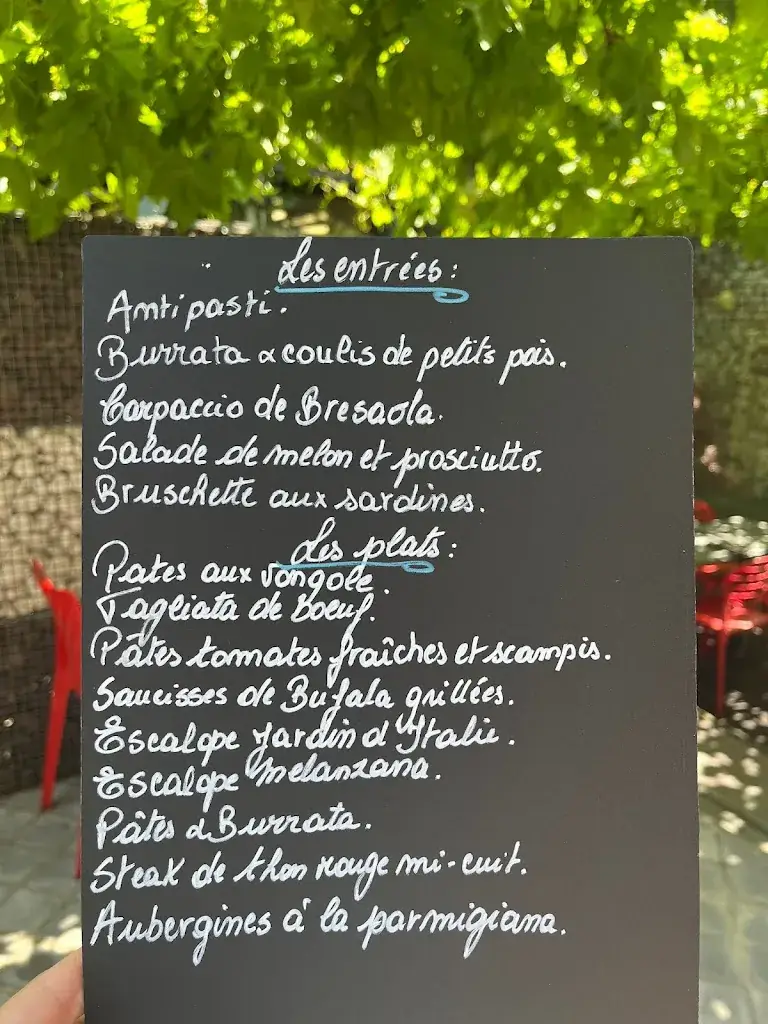 Les entrées :
Antipasti.
Burrata & coulis de petits pois.
Carpaccio de Bresaola.
Salade de melon et prosciutto.
Bruschette aux sardines.
Les plats :
Pates aux vongole.
Tagliata de boeuf.
Pâtes tomates fraîches et scampis.
Saucisses de Bufala grillées.
Escalope jardin d'Italie.
Escalope melanzana.
Pâtes & Burrata.
Steak de thon rouge mi-cuit.
Aubergines à la parmigiana.